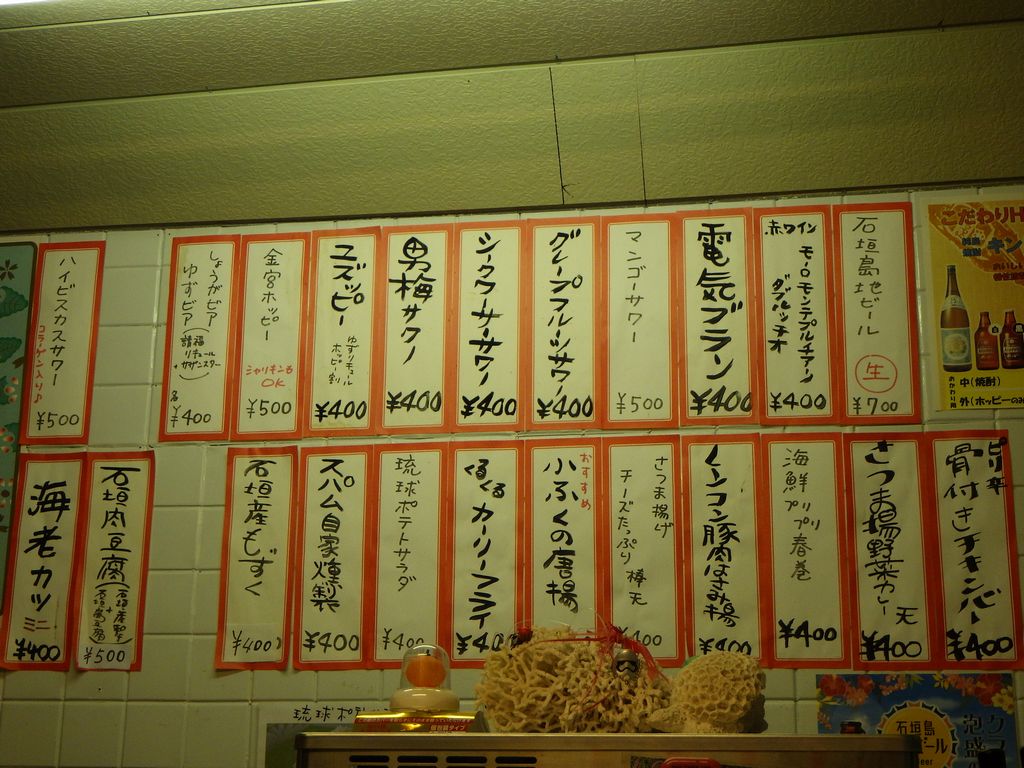 石垣島地ビール
生
¥700
赤ワイン
モーロ モンテプルチアーノ
ダブルッチオ
¥400
電気ブラン
¥400
マンゴーサワー
¥500
グレープフルーツサワー
¥400
シークワーサーサワー
¥400
男梅サワー
¥400
ユズッピー
ゆずリキュール
ホッピー割
¥400
金宮ホッピー
シャリキンも
OK
¥500
しょうがビア
ゆずビア
各
¥400
ハイビスカスサワー
コラーゲン入り♪
¥500
ピリ辛
骨付きチキンバー
¥400
さつま揚野菜カレー天
¥400
海鮮プリプリ春巻
¥400
インコン豚肉はさみ揚
¥400
さつま揚げ
チーズたっぷり棒天
¥400
おすすめ
小ふぐの唐揚
くるくる
カーリーフライ
¥400
琉球ポテトサラダ
¥400
スパム自家燻製
¥400
石垣産もずく
¥400
石垣肉豆腐
¥500
海老カツミニ
¥400
こだわりH
中(焼酎)
外(ホッピーのみ
琉球ポテ
石垣島
ビール
泡盛